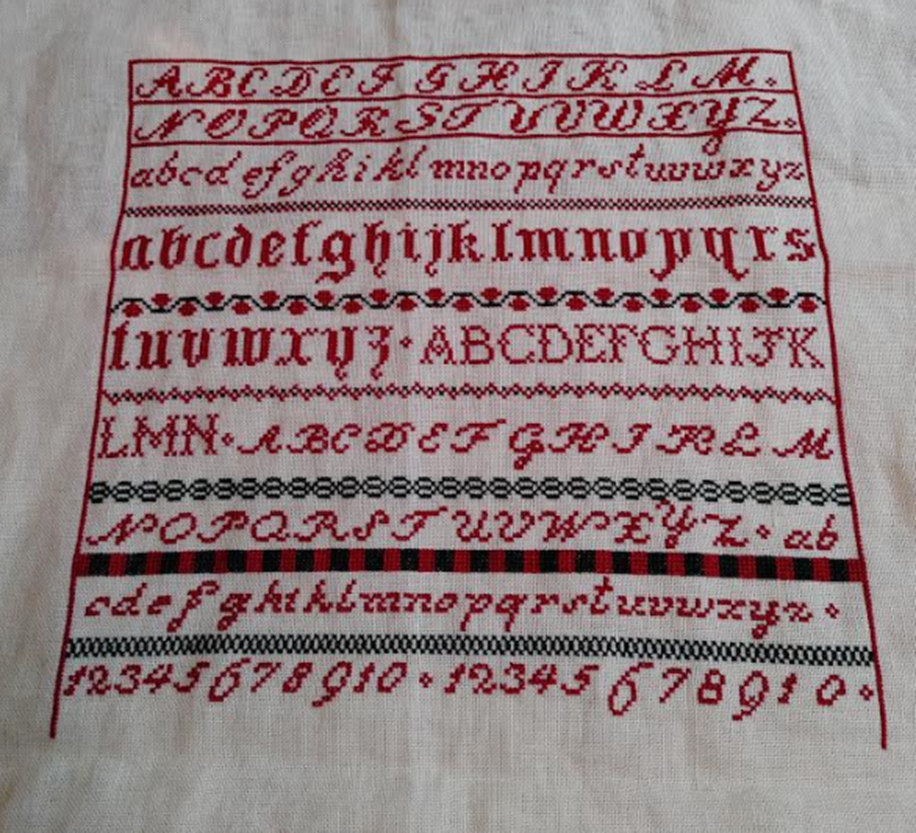 A B C D E F G H I K L M.
N O P Q R S T U V W X Y Z.
a b c d e f g h i k l m n o p q r s t u v w x y z
a b c d e f g h i j k l m n o p q r s
t u v w x y z · A B C D E F G H I J K
L M N · A B C D E F G H I K L M
N O P Q R S T U V W X Y Z · a b
c d e f g h i k l m n o p q r s t u v w x y z ·
1 2 3 4 5 6 7 8 9 10 · 1 2 3 4 5 6 7 8 9 1 0 ·